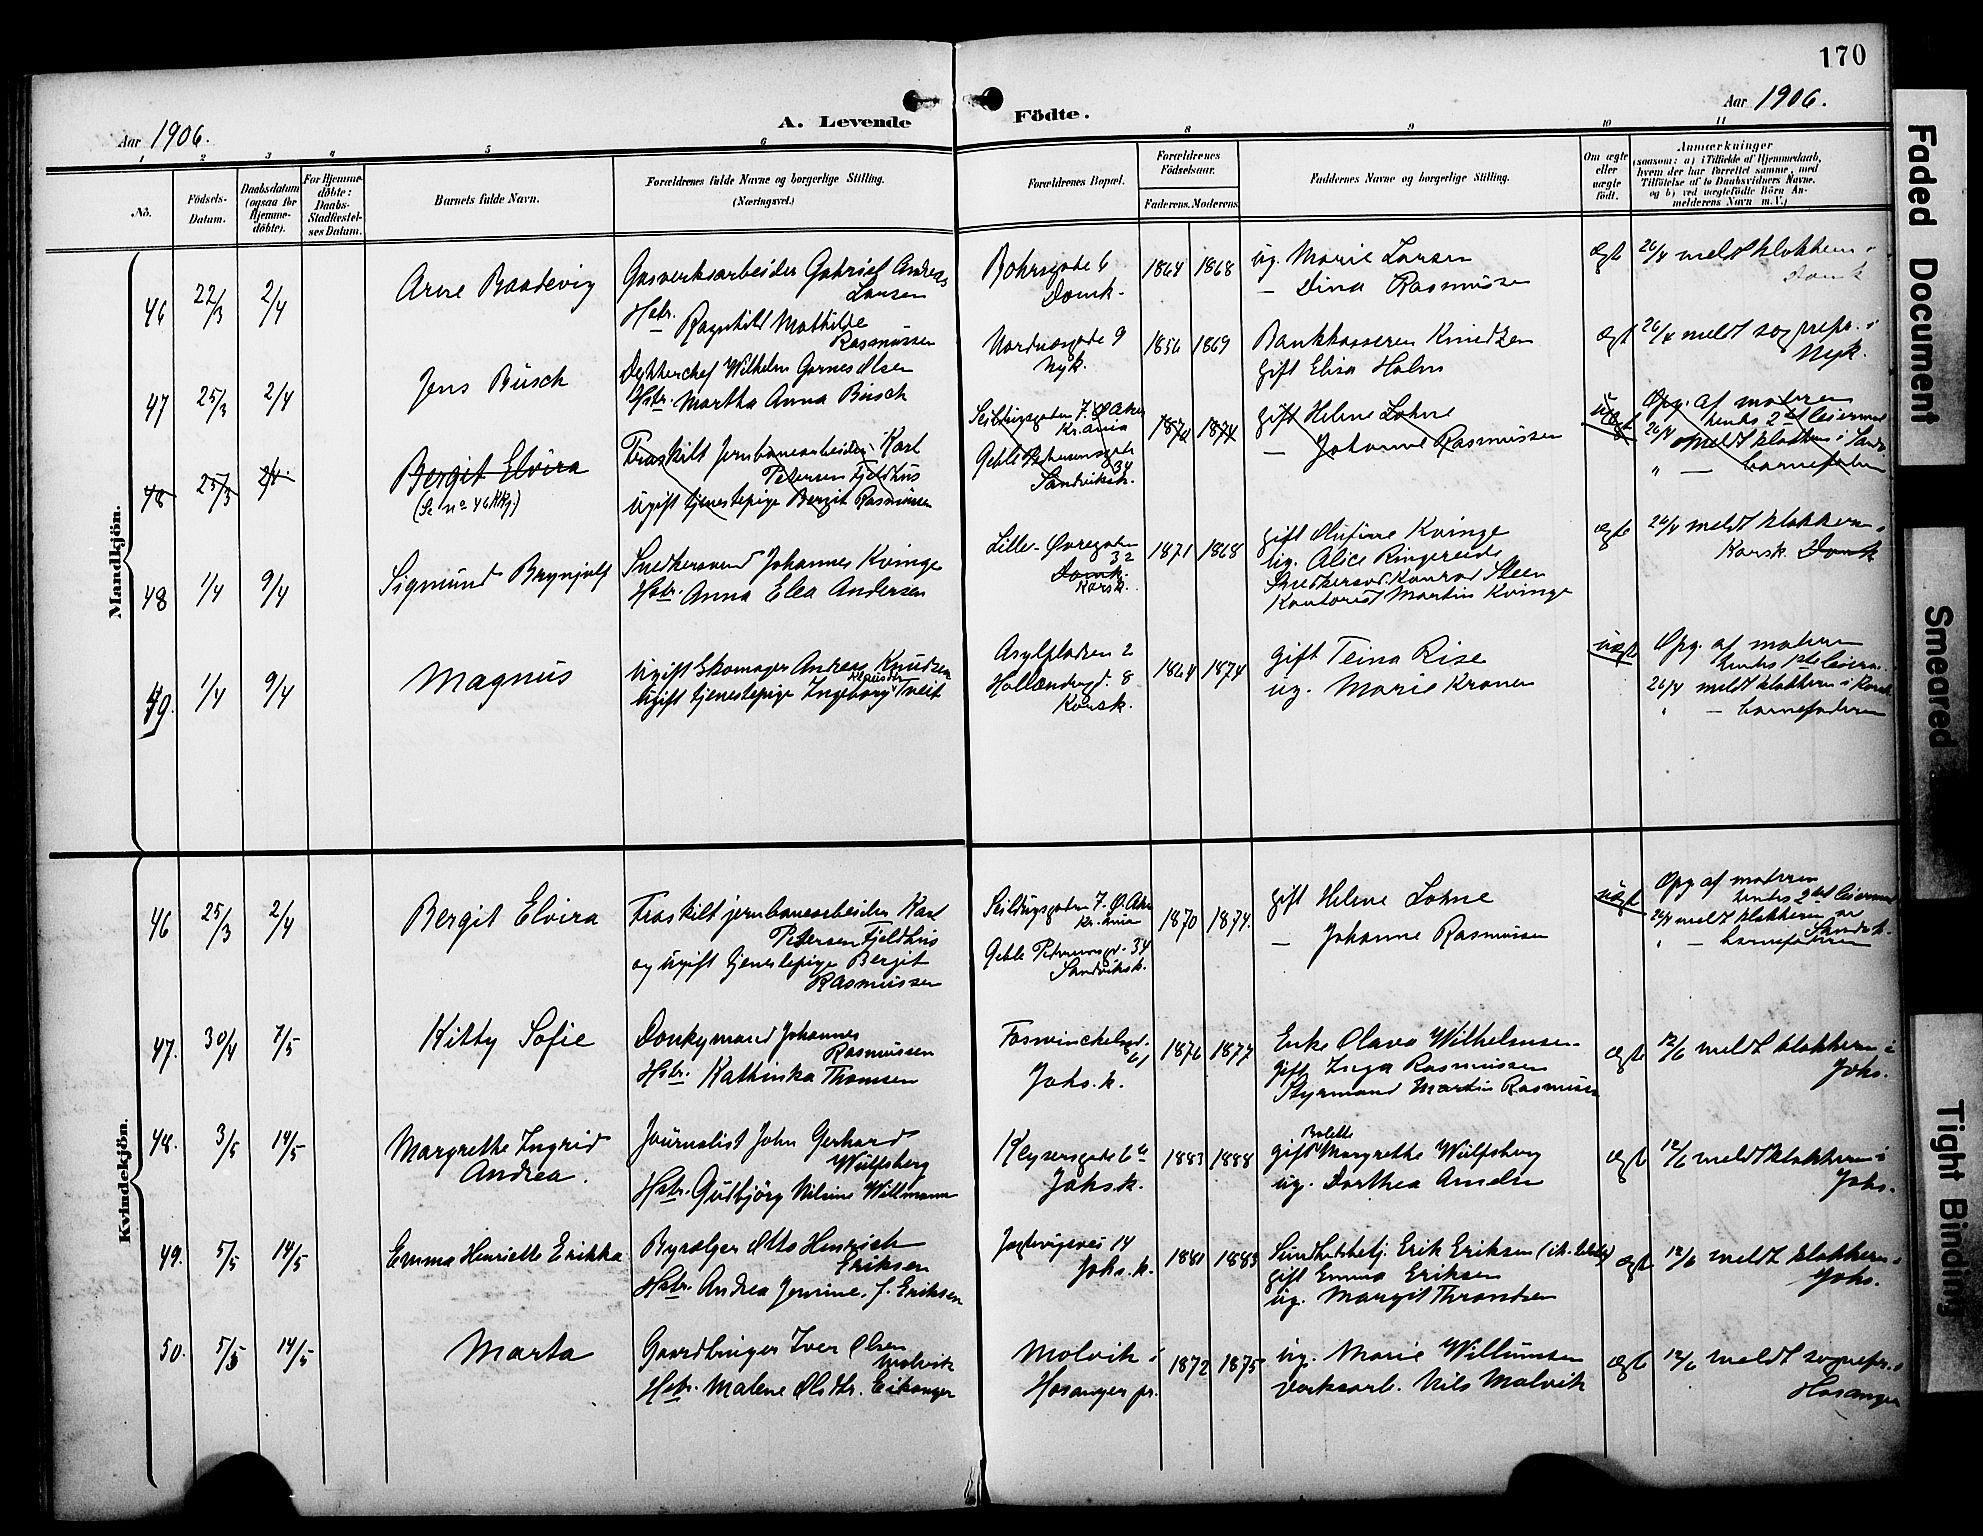 170
Aar 1906.
A. Levende Födte.
Aar 1906.
1 2 3 4 5 6 8 9 10 11
No.
Födsels-Datum.
Daabsdatum (ogsaa for Hjemmedöbte).
For Hjemmedöbte: Daabs-Stadfestelses Datum.
Barnets fulde Navn.
Forældrenes fulde Navne og borgerlige Stilling.
(Næringsvei.)
Forældrenes Bopæl.
Forældrenes Födselsaar.
Faderens. Moderens.
Faddernes Navne og borgerlige Stilling.
Om ægte eller uægte födt.
Anmærkninger
(saasom: a) i Tilfælde af Hjemmedaab, hvem der har forrettet samme, med Tilföielse af to Daabsvidners Navne, og b) ved uægtefödte Börn Anmelderens Navn m. V.)
Mandkjön.
46 22/3 2/4 Arne Baadevig
Gasverksarbeider Gabriel Andreas
Larsen
Hstr. Ragnhild Mathilde
Rasmussen
Bohrsgade 6
Domk.
1864 1868
ug. Marie Larsen
— Dina Rasmussen
ægte 26/4 meldt klokkern i
Domk
47 25/3 2/4 Jens Busch
Dykkerchef Wilhelm Garnes Olsen
Hstr. Martha Anna Busch
Nordnæsgade 9
Nyk.
1856 1869
Bankkasserer Knudtzen
gift Elisa Holm
ægt 26/4 meldt sognepr. i
Nyk.
48 25/3 2/4 Bergit Elvira
(Se no 46 Kkj.)
Fraskilt Jernbanearbeider Karl
Petersen Fjeldhus
ugift tjenestepige Bergit Rasmussen
Seildugsgaden 7. Ø. Aker
Kr.ania
Geble Pedersensgade
34
Sandviksk.
1870 1874
gift Helene Lohne
— Johanne Rasmussen
uægt Opg. af moderen
hendes 2det leiermaal
26/4 Meldt klokkern i Sandv
" — barnefaderen
48 1/4 9/4 Sigmund Brynjulf
Snedkersvend Johannes Kvinge
Hstr. Anna Elea Andersen
Lille-Øvregaden
32
Domk.
Korsk.
1871 1868
gift Rufine Kvinge
ug. Alice Ringereide
Snedkersvd Konrad Steen
Kontorist Martin Kvinge
ægte 26/4 meldt klokkern i
Korsk. Domk
49. 1/4 9/4 Magnus
Ugift Skomager Andreas Knudsen
Ugift tjenestepige Ingeborg Tveit
Asylpladsen 2
Hollændergd. 8
Korsk.
1864 1874
gift Teina Rise
ug. Marie Kraner
uægt Opg. af moderen
hendes 1ste leierm.
26/4 meldt klokkern i Korsk
" — barnefaderen
Kvindekjön.
46 25/3 2/4 Bergit Elvira
Fraskilt jernbanearbeider Karl
Petersen Fjeldhus
og ugift tjenestepige Bergit
Rasmussen
Seildugsgaden 7. Ø. Aker
Kr.ania
Geble Pedersensgd. 34
Sandviksk.
1870 1874.
gift Helene Lohne
— Johanne Rasmussen
uægt Opg af moderen
hendes 2det leiermaal
26/4 meldt klokkern
Sandvk.
" — barnefaderen
47. 30/4 7/5 Kitty Sofie
Donkymand Johannes
Rasmussen
Hstr. Kathinka Thomsen
Fosswinckelsgd.
61
Johs. k.
1876 1877
Enke Olava Wilhelmsen
gift Inga Rasmussen
Styrmand Martin Rasmussen
ægte 12/6 meldt klokkern i
Johs.
48. 3/5 14/5 Margrethe Ingrid
Andrea.
Journalist John Gerhard
Wulfsberg
Hstr. Gudbjörg Nilsine Willmann
Keysersgade 6
Johs k.
1883 1888
Bolette
gift Margrethe Wulfsberg
ug. Dorthea Ameln
ægt 12/6 meldt klokkern i
Johs.
49. 5/5 14/5 Emma Henriette Erikka
Bysælger Otto Henrich
Eriksen
Hstr. Andrea Jensine, f. Eriksen
Jægtevigsvei 14
Johs. k.
1881 1883
Sundhedsbetj. Erik Eriksen
gift Emma Eriksen
ug. Margit Throndsen
ægt 12/6 meldt klokkern i
Johs.
50. 5/5 14/5 Marta
Gaardbruger Iver Olsen
Molvik
Hstr. Malene Olsdtr. Eikanger
Molvik i
Hosanger pr.
1872 1875
ug. Marie Willumsen
Verksarb. Nils Molvik
ægt 12/6 meldt sognepr. i
Hosanger
Faded Document
Smeared
Tight Binding